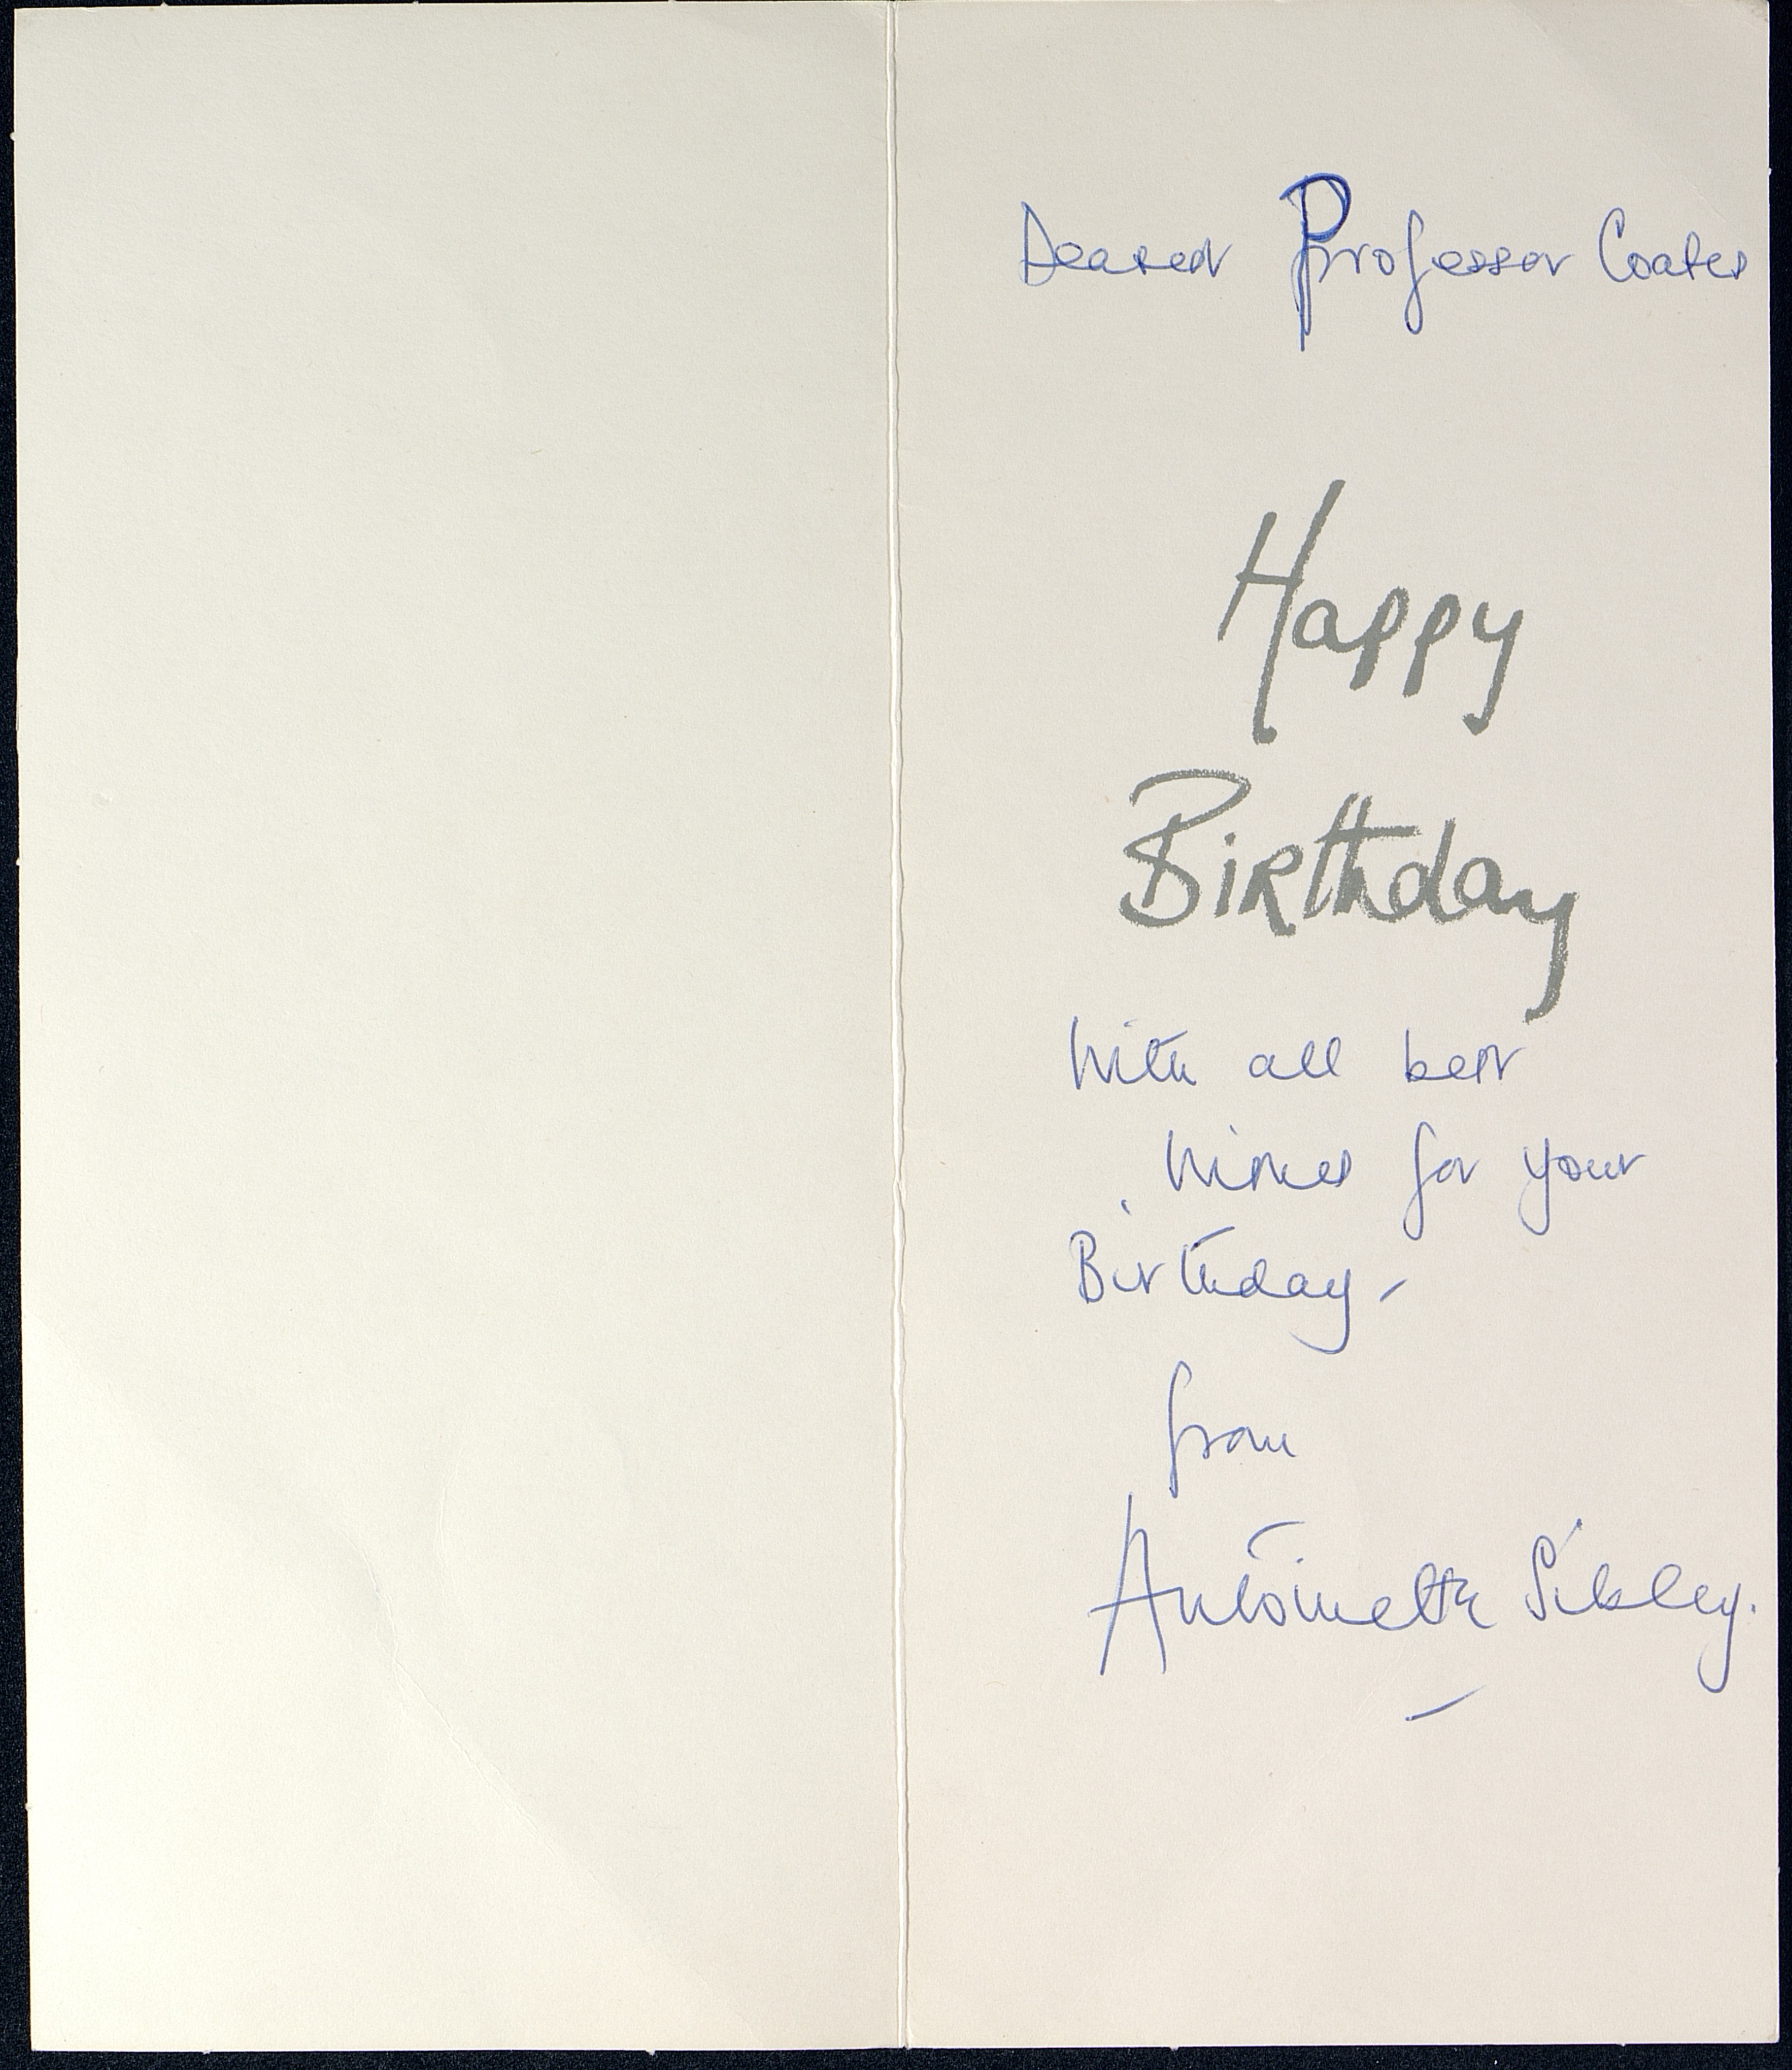 Dearest Professor Coates
Happy
Birthday
With all best
wishes for your
Birthday -
from
Antoinette Sibley.